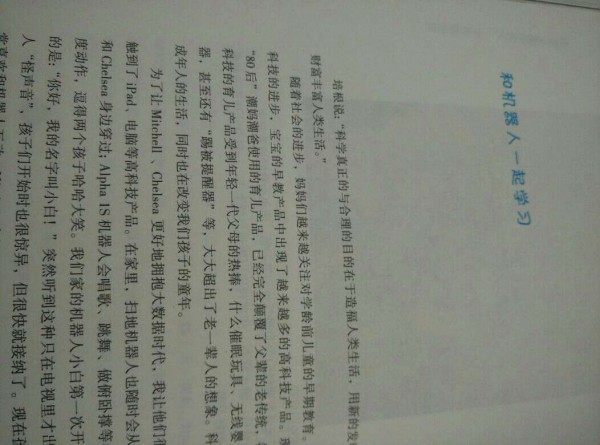 和机器人一起学习
培根说，“科学真正的与合理的目的在于造福人类生活，用新的发
财富丰富人类生活。”
随着社会的进步，妈妈们越来越关注对学龄前儿童的早期教育。
科技的进步，宝宝的早教产品中出现了越来越多的高科技产品。
“80后”潮妈潮爸使用的育儿产品，已经完全颠覆了父辈的老传统，
科技的育儿产品受到年轻一代父母的热捧，什么催眠玩具、无线婴
器，甚至还有“踢被提醒器”等，大大超出了老一辈人的想象。科
成年人的生活，同时也在改变我们孩子的童年。
为了让Mitchell、Chelsea更好地拥抱大数据时代，我让他们很
触到了iPad、电脑等高科技产品。在家里，扫地机器人也随时会从
和Chelsea身边穿过；Alpha 1S机器人会唱歌、跳舞、做俯卧撑等
度动作，逗得两个孩子哈哈大笑。我们家的机器人小白第一次开
的是：“你好，我的名字叫小白！”突然听到这种只在电视里才出
人“怪声音”，孩子们开始时也很惊异，但很快就接纳了。现在孩